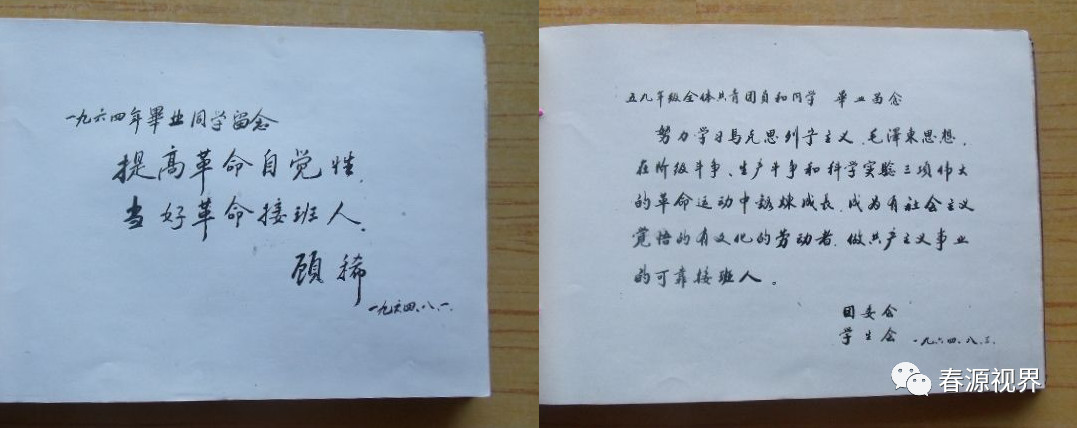 一九六四年畢业同学留念
提高革命自觉性，
当好革命接班人。
顾稀
一九六四、八、一、
五九年级全体共青团员和同学 畢业留念
努力学习馬克思列宁主义、毛澤東思想，
在阶级斗争、生产斗争和科学实驗三項伟大
的革命运动中鍛煉成長，成为有社会主义
觉悟的有文化的劳动者，做共产主义事业
的可靠接班人。
团委会
学生会 一九六四、八、三、
春源视界